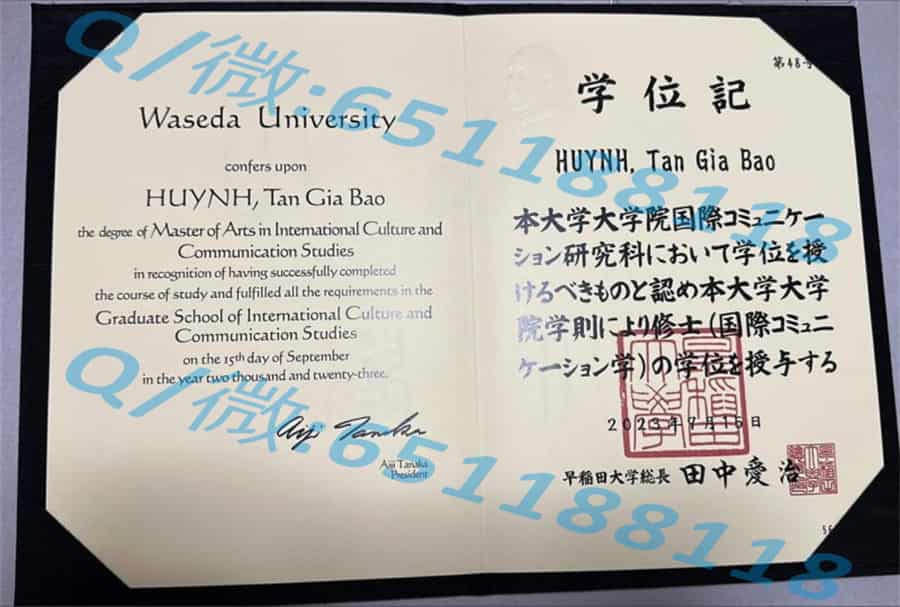 Q/微:651188118
Waseda University
confers upon
HUYNH, Tan Gia Bao
the degree of Master of Arts in International Culture and
Communication Studies
in recognition of having successfully completed
the course of study and fulfilled all the requirements in the
Graduate School of International Culture and
Communication Studies
on the 15th day of September
in the year two thousand and twenty-three.
Aiji Tanaka
Aiji Tanaka
President
第48号
学位記
HUYNH, Tan Gia Bao
本大学大学院国際コミュニケー
ション研究科において学位を授
けるべきものと認め本大学大学
院学則により修士(国際コミュニ
ケーション学)の学位を授与する
2023年9月15日
早稲田大学総長 田中愛治
Q/微:651188118